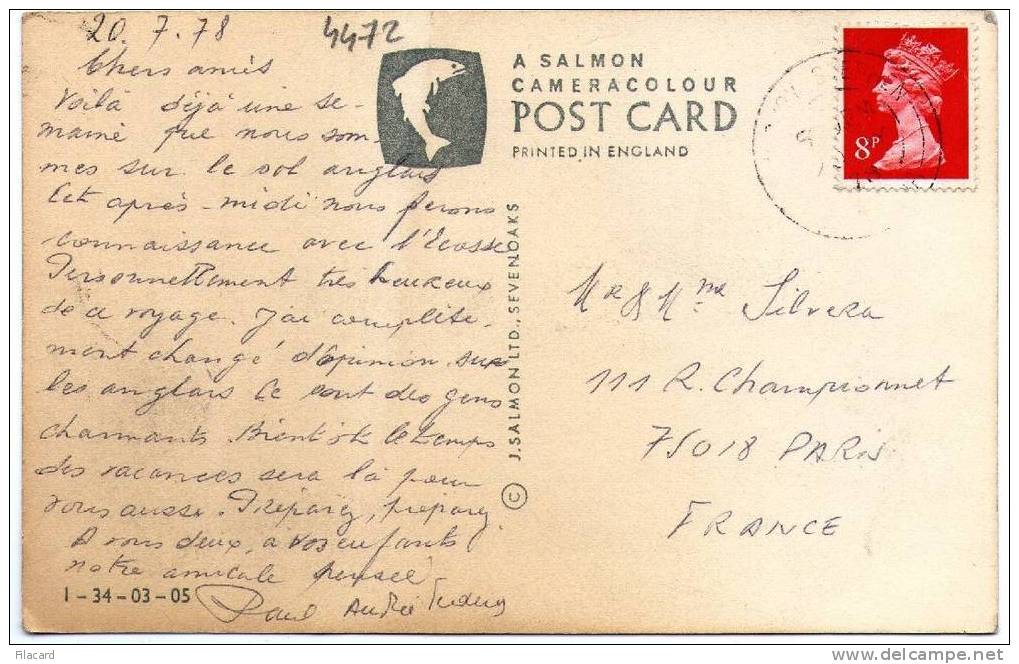 20.7.78
4472
Chers amis
Voilà déjà une se-
maine que nous som-
mes sur le sol anglais
Cet après-midi nous ferons
connaissance avec l'Ecosse
Personnellement très heureux
de ce voyage. J'ai complète-
ment changé d'opinion sur
les anglais Ce sont des gens
charmants. Bientôt le temps
des vacances sera là pour
vous aussi. Préparez, préparez
A vous deux, à vos enfants
notre amicale pensée
Paul Andrée
1-34-03-05
A SALMON
CAMERACOLOUR
POST CARD
PRINTED IN ENGLAND
© J. SALMON LTD., SEVENOAKS
8P
Mr & Mme Silvera
111 R. Championnet
75018 PARIS
FRANCE
Filacard
delcampe.net